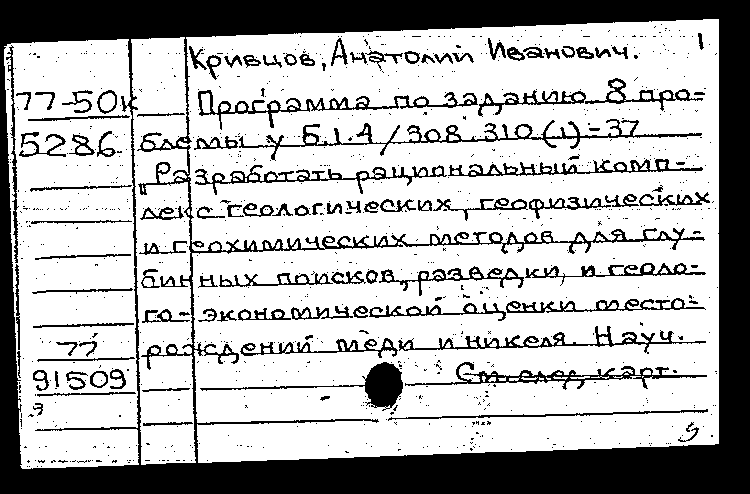 Кривцов, Анатолий Иванович. 1
77-50к Программа по заданию 8 про=
5286 блемы у Б.1.4/308.310(1)=37
"Разработать рациональный комп-
лекс геологических, геофизических
и геохимических методов для глу-
бинных поисков, разведки, и геоло-
го-экономической оценки место-
77 рождений меди и никеля. Науч.
91509 См. след. карт.
э
9